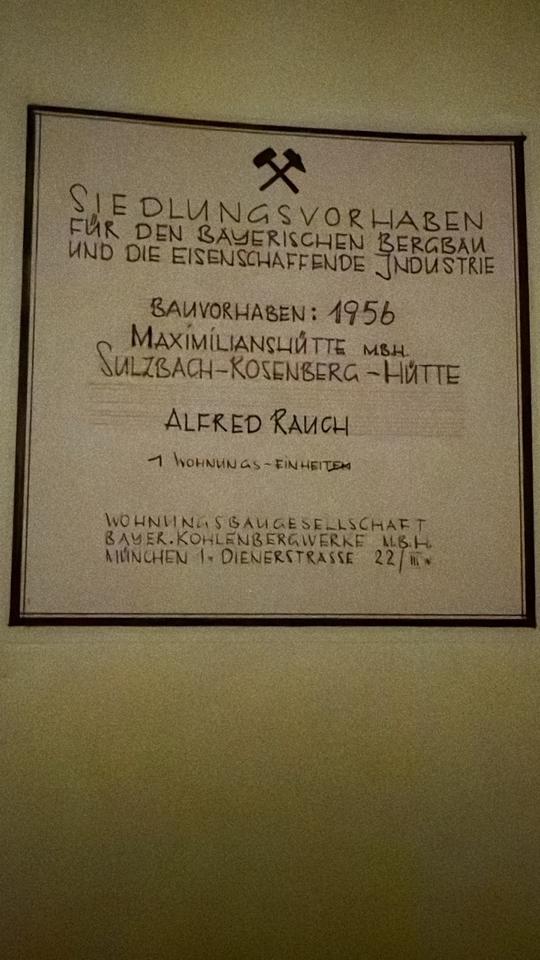 SIEDLUNGSVORHABEN
FÜR DEN BAYERISCHEN BERGBAU
UND DIE EISENSCHAFFENDE INDUSTRIE
BAUVORHABEN: 1956
MAXIMILIANSHÜTTE MBH.
SULZBACH-ROSENBERG-HÜTTE
ALFRED RAUCH
1 WOHNUNGS-EINHEITEN
WOHNUNGSBAUGESELLSCHAFT
BAYER. KOHLENBERGWERKE M.B.H.
MÜNCHEN 1. DIENERSTRASSE 22/III.